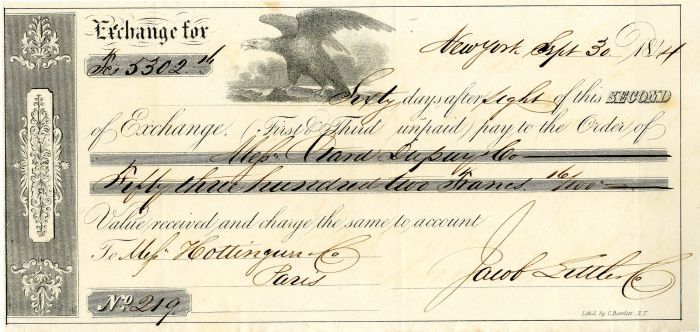 Exchange for
Fcs 5302.16
New York Sept 30 1844
Sixty days after sight of this SECOND
of Exchange. (First & Third unpaid) pay to the Order of
Messrs Otard Dupuy & Co
Fifty three hundred two Francs 16/100
Value received and charge the same to account
To Messrs Hottinguer & Co
Paris
Jacob Little & Co
No 219.
Lithd. by C. Bartlett, N.Y.